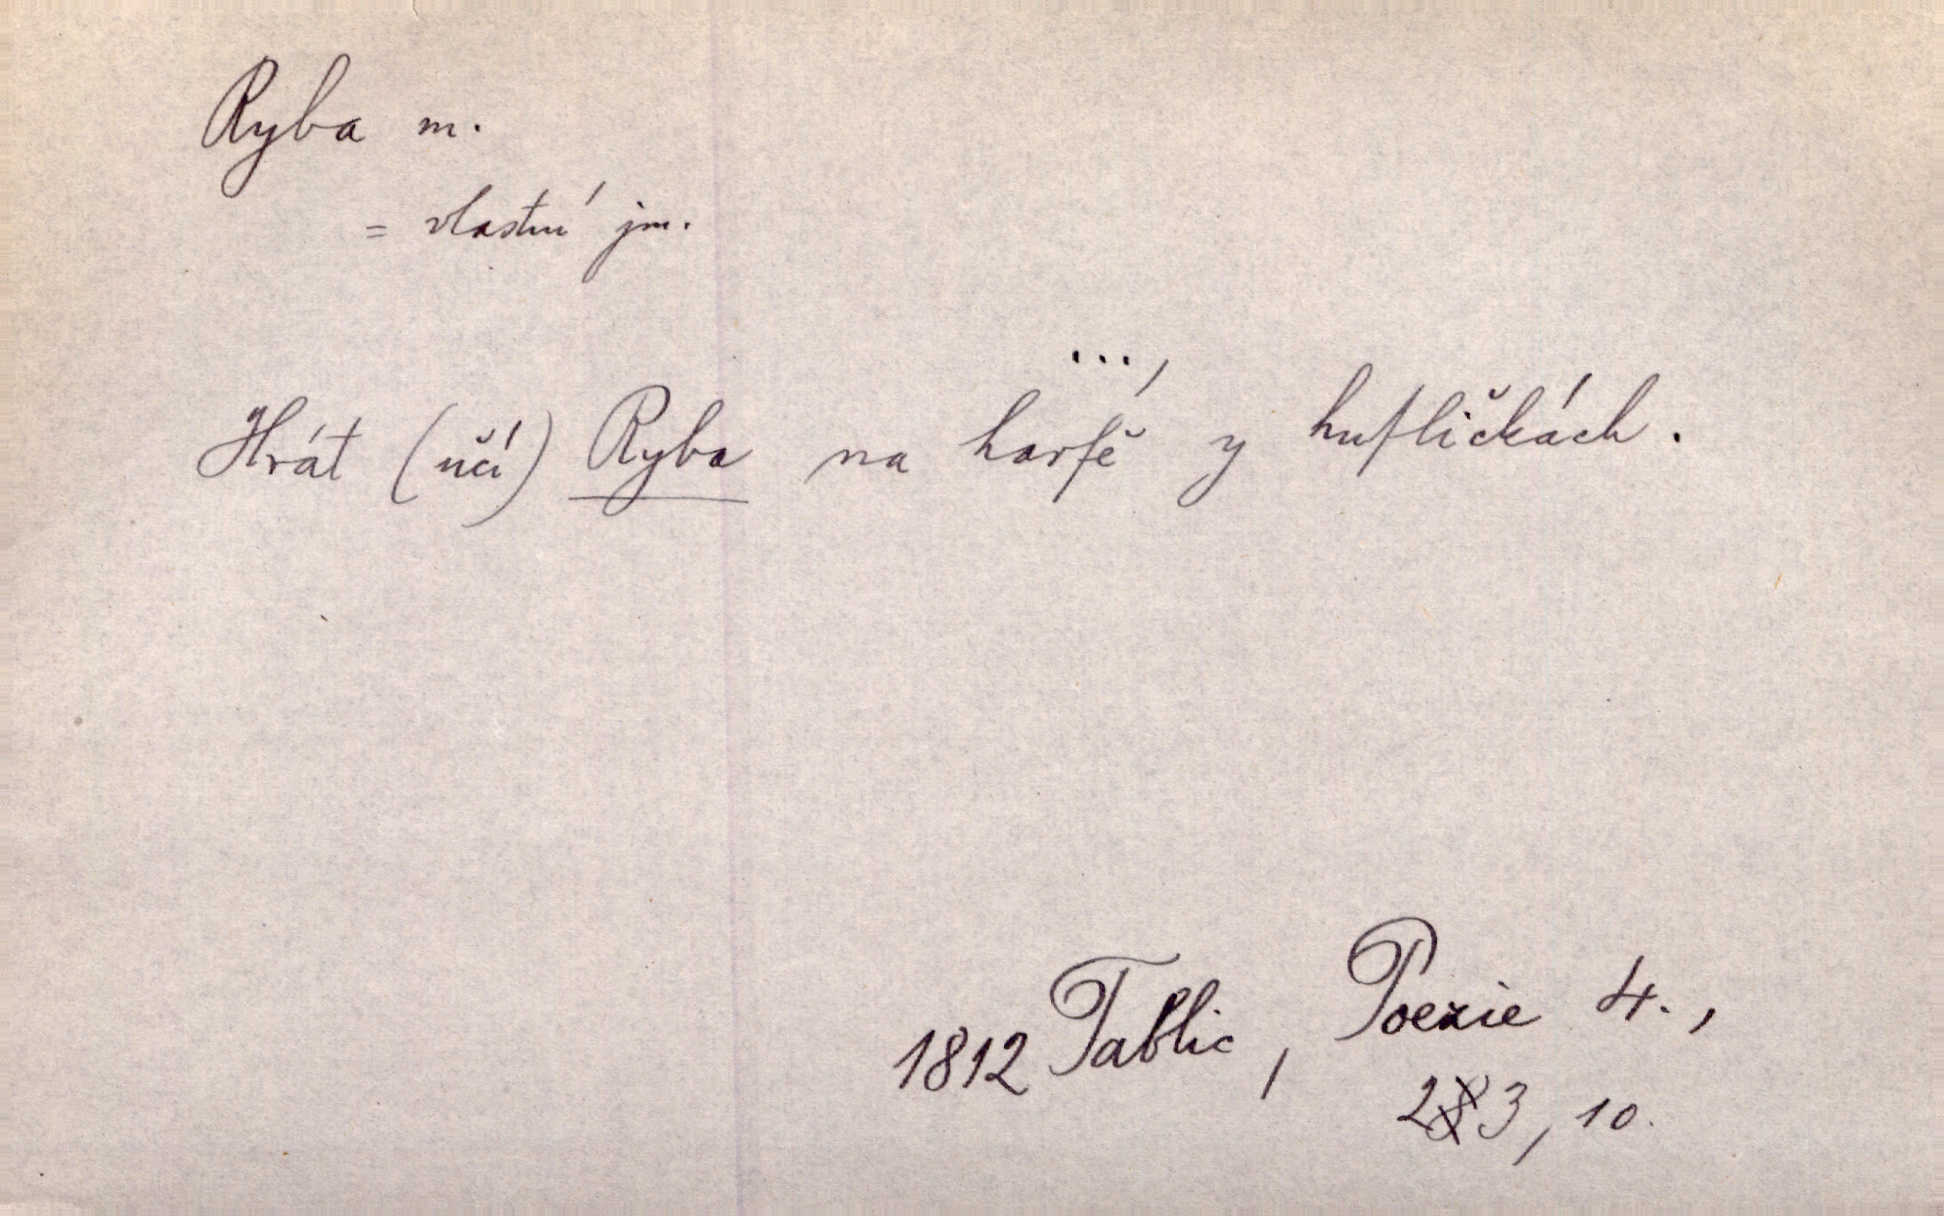 Ryba m.
= vlastní jm.
Hrát (učí) Ryba na harfě ..., y hufličkách.
1812 Tablic, Poezie 4.,
23, 10.